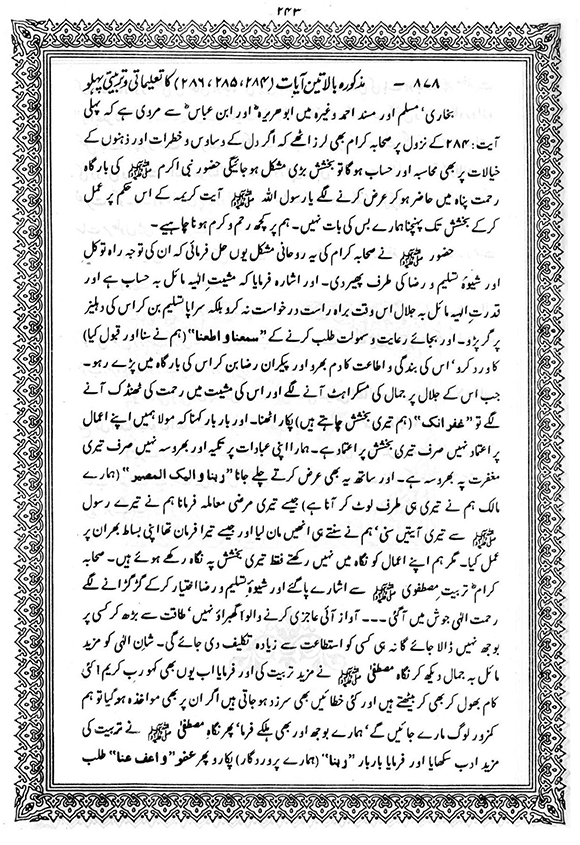 ۲۴۳
۸۷۸ – مذکورہ بالا تین آیات (۲۸۴، ۲۸۵، ۲۸۶) کا تعلیماتی و تربیتی پہلو
بخاری، مسلم اور مسند احمد وغیرہ میں ابوھریرہؓ اور ابن عباسؓ سے مردی ہے کہ پہلی
آیت: ۲۸۴ کے نزول پر صحابہ کرام بھی لرز اٹھے کہ اگر دل کے وساوس و خطرات اور ذہنوں کے
خیالات پر بھی محاسبہ اور حساب ہو گا تو بخشش بڑی مشکل ہو جائیگی حضور نبی اکرم ﷺ کی بارگاہ
رحمت پناہ میں حاضر ہو کر عرض کرنے لگے یا رسول اللہ ﷺ آیت کریمہ کے اس حکم پر عمل
کر کے بخشش تک پہنچنا ہمارے بس کی بات نہیں۔ ہم پر کچھ رحم و کرم ہونا چاہیے۔
حضور ﷺ نے صحابہ کرام کی یہ روحانی مشکل یوں حل فرمائی کہ ان کی توجہ راہ توکل
اور شیوۂ تسلیم و رضا کی طرف پھیر دی۔ اور اشارہ فرمایا کہ مشیت الٰہیہ مائل بہ حساب ہے اور
قدرت الٰہیہ مائل بہ جلال اس وقت براہ راست درخواست نہ کرو بلکہ سراپا تسلیم بن کر اس کی دہلیز
پر گر پڑو۔ اور بجائے رعایت و سہولت طلب کرنے کے ”سمعنا و اطعنا“ (ہم نے سنا اور قبول کیا)
کا ورد کرو، اس کی بندگی و اطاعت کا دم بھرو اور پیکران رضا بن کر اس کی بارگاہ میں پڑے رہو۔
جب اس کے جلال پر جمال کی مسکراہٹ آنے لگے اور اس کی مشیت میں رحمت کی ٹھنڈک آنے
لگے تو ”غفرانک“ (ہم تیری بخشش چاہتے ہیں) پکار اٹھنا۔ اور بار بار کہنا کہ مولا ہمیں اپنے اعمال
پر اعتماد نہیں صرف تیری بخشش پر اعتماد ہے۔ ہمارا اپنی عبادات پر تکیہ اور بھروسہ نہیں صرف تیری
مغفرت پہ بھروسہ ہے۔ اور ساتھ یہ بھی عرض کرتے چلے جانا ”ربنا و الیک المصیر“ (ہمارے
مالک ہم نے تیری ہی طرف لوٹ کر آنا ہے) جیسے تیری مرضی معاملہ فرمانا ہم نے تیرے رسول
ﷺ سے تیری آیتیں سنی، ہم نے سنتے ہی انھیں مان لیا اور جیسے تیرا فرمان تھا اپنی بساط بھر ان پر
عمل کیا۔ مگر ہم اپنے اعمال کو نگاہ میں نہیں رکھتے فقط تیری بخشش پہ نگاہ رکھے ہوئے ہیں۔ صحابہ
کرامؓ تربیت مصطفوی ﷺ سے اشارے پا گئے اور شیوۂ تسلیم و رضا اختیار کر کے گڑ گڑانے لگے
رحمت الٰہی جوش میں آ گئی۔۔۔ آواز آئی عاجزی کرنے والو! گھبراؤ نہیں، طاقت سے بڑھ کر کسی پر
بوجھ نہیں ڈالا جائے گا نہ ہی کسی کو استطاعت سے زیادہ تکلیف دی جائے گی۔ شان الٰہی کو مزید
مائل بہ جمال دیکھ کر نگاہ مصطفیٰ ﷺ نے مزید تربیت کی اور فرمایا اب یوں بھی کہو رب کریم! کئی
کام بھول کر بھی کر بیٹھتے ہیں اور کئی خطائیں بھی سرزد ہو جاتی ہیں اگر ان پر بھی مواخذہ ہو گیا تو ہم
کمزور لوگ مارے جائیں گے، ہمارے بوجھ اور بھی ہلکے فرما، پھر نگاہ مصطفیٰ ﷺ نے تربیت کی
مزید ادب سکھایا اور فرمایا بار بار ”ربنا“ (ہمارے پروردگار) پکارو پھر عفو ”واعف عنا“ طلب